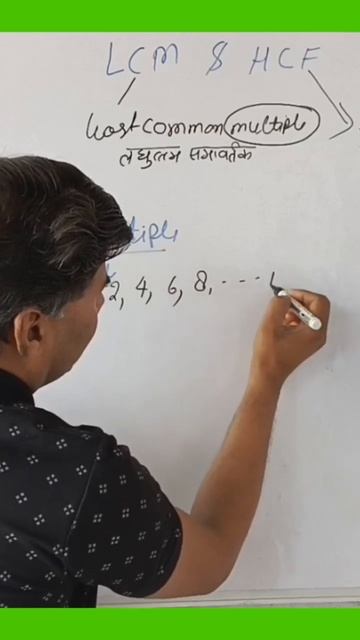 LCM & HCF
Least common multiple
लघुत्तम समावर्तक
2, 4, 6, 8, ----